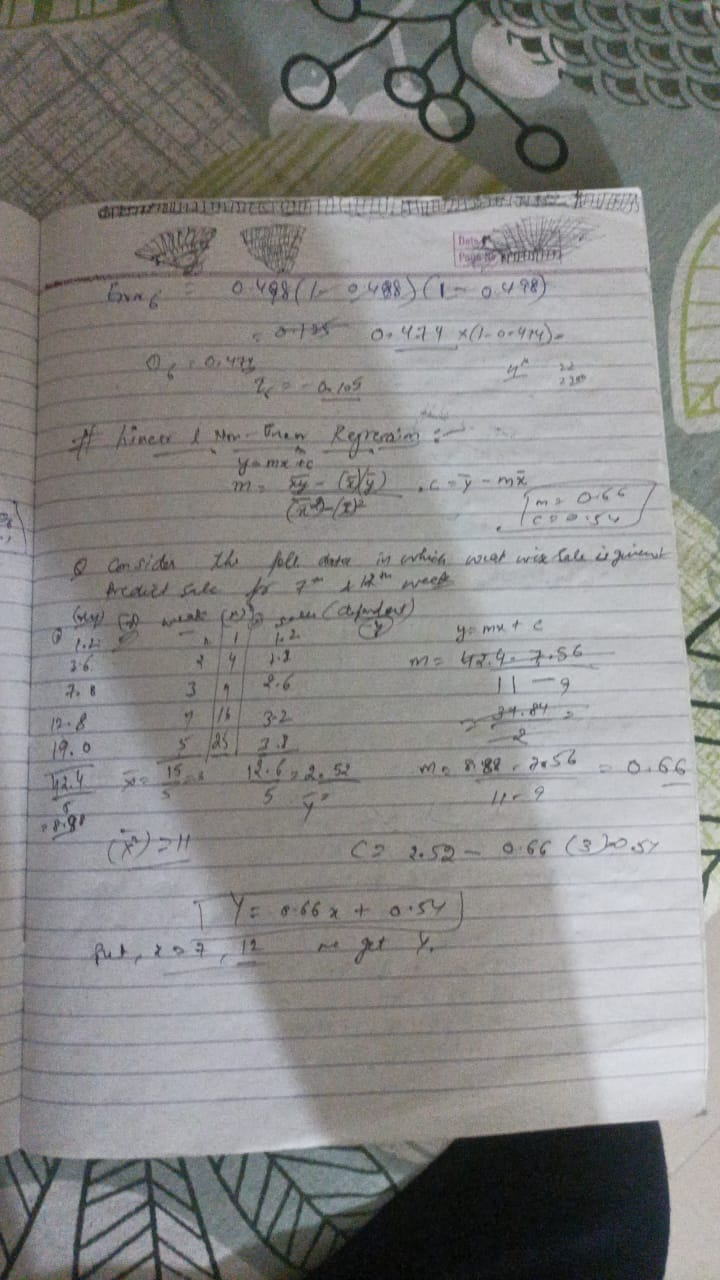 Date
Page No
= 0.498 (1 - 0.498) (1 - 0.498)
= 0.125 0.474 x (1 - 0.474) =
O6 = 0.474
= - 0.105
# Linear & Non-linear Regression :-
y = mx + c
m = xy̅ - (x̅)(y̅) / (x̅²) - (x̅)² . c = y̅ - mx̅
m = 0.66
c = 0.54
Q Consider the foll data in which week wise sale is given
Predict sale for 7th & 12th week
(xy) (x) week (x²) sales (dependent) (y)
1.2 1 1 1.2
3.6 2 4 1.8
7.8 3 9 2.6
12.8 4 16 3.2
19.0 5 25 3.8
y = mx + c
m = 42.4 - 7.56 / 11 - 9
= 34.84 / 2 =
42.4 / 5 = 8.48
x̅ = 15 / 5 = 3 12.6 / 5 = 2.52 y̅
m = 8.48 - 7.56 / 11 - 9 = 0.66
(x̅²) = 11
C = 2.52 - 0.66 (3) = 0.54
Y = 0.66 x + 0.54
put, x = 7, 12 we get Y.